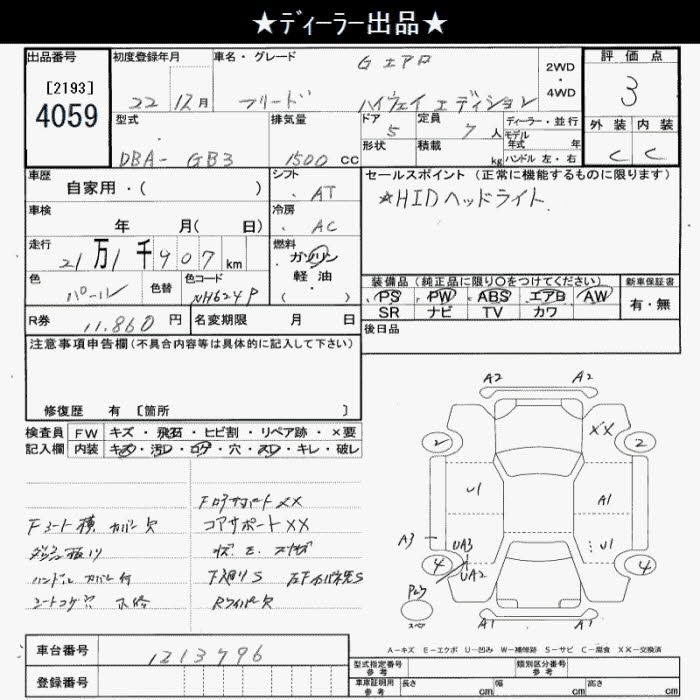 ★ディーラー出品★
出品番号
[2193]
4059
初度登録年月
22 12月
車名・グレード
フリード
G エアロ
ハイウェイ エディション
2WD
・
4WD
評価点
3
外装 内装
C C
型式
DBA- GB3
排気量
1500 CC
ドア 5
形状
定員 7 人
積載 kg
ディーラー・並行
モデル
年式 年
ハンドル 左・右
車歴
自家用・( )
シフト
AT
車検
年 月( 日)
冷房
AC
走行
21万1千907 km
燃料
ガソリン
軽油
( )
色
パール
色替
色コード
NH624P
R券 11,860 円
名変期限 月 日
セールスポイント(正常に機能するものに限ります)
☆HIDヘッドライト
装備品(純正品に限り〇をつけてください)
PS PW ABS エアB AW
SR ナビ TV カワ
新車保証書
有・無
後日品
注意事項申告欄(不具合内容等は具体的に記入して下さい)
修復歴 有 〔箇所 〕
検査員
記入欄
FW キズ・飛石・ヒビ割・リペア跡・×要
内装 キズ・汚レ・コゲ・穴・スレ・キレ・破レ
Fコアサポート XX
Fシート横 カバー欠
コアサポート XX
ハンドル カバー付
下廻りS
シートコゲ穴
Rワイパー欠
A2 A2
XX
2 2
U1 A1
A3 UA3 U1
4 UA2 4
A1 A1
A-キズ E-エクボ U-凹み W-補修跡 S-サビ C-腐食 XX-交換済
車台番号 1213796
登録番号
型式指定番号
参考
類別区分番号
参考
車庫証明用
参考
長さ cm 幅 cm 高さ cm